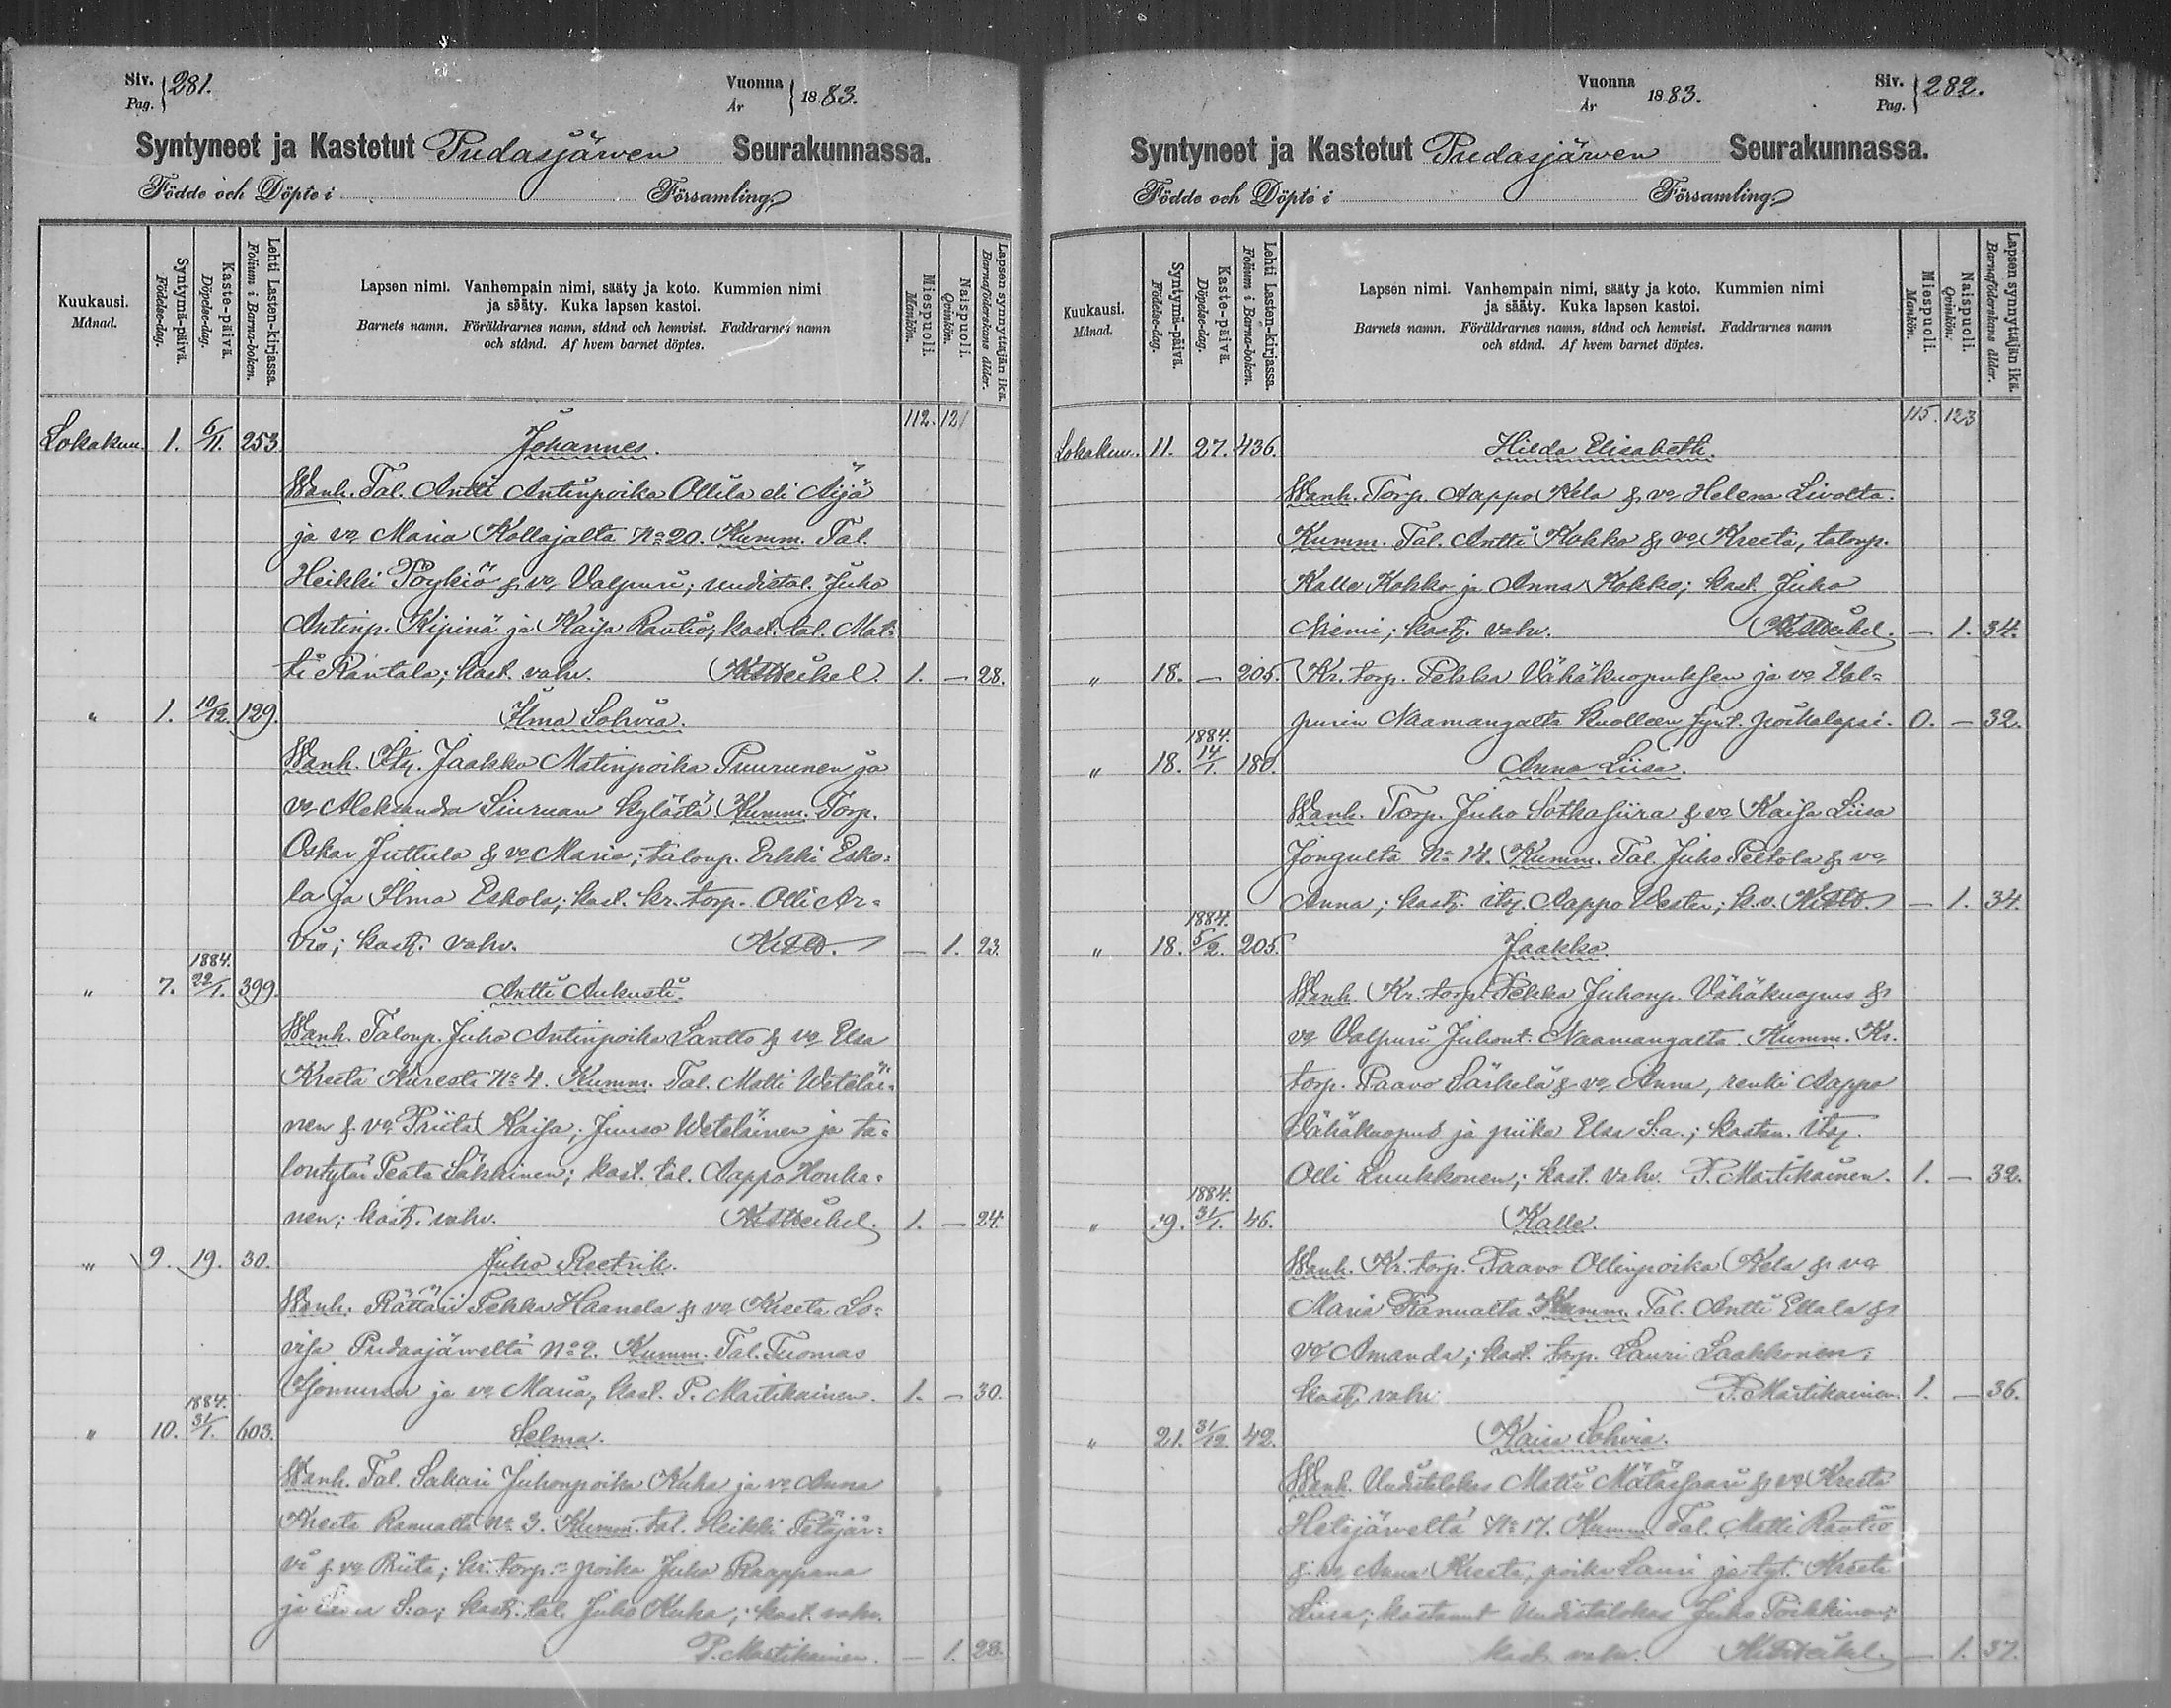 Siv. Pag. 281.
Vuonna År 1883.
Syntyneet ja Kastetut Pudasjärwen Seurakunnassa.
Födde och Döpte i Församling
Kuukausi. Månad.
Syntymä-päivä. Födelse-dag.
Kaste-päivä. Döpelse-dag.
Lehti Lasten-kirjassa. Folium i Barna-boken.
Lapsen nimi. Vanhempain nimi, sääty ja koto. Kummien nimi
ja sääty. Kuka lapsen kastoi.
Barnets namn. Föräldrarnes namn, stånd och hemvist. Faddrarnes namn
och stånd. Af hvem barnet döptes.
Miespuoli. Mankön.
Naispuoli. Qvinkön.
Lapsen synnyttäjän ikä. Barnaföderskans ålder.
112. 121
Lokakuu. 1. 6/11. 253. Johannes.
Wanh. Tal. Antti Antinpoika Ollila eli Äijä
ja vo Maria Kollajalta No 20. Kumm. Tal.
Heikki Pöykiö & vo Valpuri; uudistal. Juho
Antinp. Kipinä ja Kaisa Rautio; kast. tal. Mat-
ti Rantala; kast. vahv. 1. — 28.
" 1. 10/12. 129. Ilma Sohvia.
Wanh. Itg. Jaakko Matinpoika Puurunen ja
vo Aleksandra Siuruan kylästä Kumm. Torp.
Oskar Juttula & vo Maria; taloup. Erkki Esko-
la ja Ilma Eskola; kast. kr. torp. Olli Ar-
vio; kast. vahv. — 1. 23.
1884.
" 7. 22/1. 399. Antti Aukusti.
Wanh. Taloup. Juho Antinpoika Santto & vo Elsa
Kreeta Kuresta No 4. Kumm. Tal. Matti Weteläi-
nen & vo Priita Kaisa; Junso Weteläinen ja ta-
lontytär Peata Säkkinen; kast. tal. Aappo Honka-
nen; kast. vahv. 1. — 24.
" 9. 19. 30. Juho Reetrik.
Wanh. Rättäri Pekka Haanela & vo Kreeta Lo-
visa Pudasjärweltä No 2. Kumm. Tal. Tuomas
ja vo Maria, kast. P. Martikainen. 1. — 30.
1884.
" 10. 31/1. 603. Selma.
Wanh. Tal. Sakari Juhonpoika Kuha ja vo Anna
Kreeta Ranualta No 3. Kumm. tal. Heikki Petäjär-
vi & vo Riita; kr. torp. poika Juho Raappana
ja S:a; kast. tal. Juho Kuha; kast. vahv.
P. Martikainen. — 1. 28.
Vuonna År 1883.
Siv. Pag. 282.
Syntyneet ja Kastetut Pudasjärwen Seurakunnassa.
Födde och Döpte i Församling
Kuukausi. Månad.
Syntymä-päivä. Födelse-dag.
Kaste-päivä. Döpelse-dag.
Lehti Lasten-kirjassa. Folium i Barna-boken.
Lapsen nimi. Vanhempain nimi, sääty ja koto. Kummien nimi
ja sääty. Kuka lapsen kastoi.
Barnets namn. Föräldrarnes namn, stånd och hemvist. Faddrarnes namn
och stånd. Af hvem barnet döptes.
Miespuoli. Mankön.
Naispuoli. Qvinkön.
Lapsen synnyttäjän ikä. Barnaföderskans ålder.
115. 123
Lokakuu. 11. 27. 436. Hilda Elisabeth.
Wanh. Torp. Aappo Kela & vo Helena Livolta.
Kumm. Tal. Antti Kokko & vo Kreeta, taloup.
Kalle Kokko ja Anna Kokko; kast. Juho
Niemi; kast. vahv. — 1. 34.
" 18. — 205. Kr. torp. Pekka Vähäkuopuksen ja vo Val-
purin Naamangalta kuolleen synt. poikalapsi. 0. — 32.
1884.
" 18. 14/1. 180. Anna Liisa.
Wanh. Torp. Juho Sotkasiira & vo Kaisa Liisa
Jongulta No 14. Kumm. Tal. Juho Peltola & vo
Anna; kast. itg. Aappo Wester; k.v. — 1. 34.
1884.
" 18. 5/2. 205. Jaakko.
Wanh. Kr. torp. Pekka Juhonp. Vähäkuopus &
vo Valpuri Juhont. Naamangalta. Kumm. Kr.
torp. Paavo Särkelä & vo Anna, renki Aappo
Vähäkuopus ja piika Elsa S:a.; kastan. itg.
Olli Luukkonen; kast. vahv. P. Martikainen. 1. — 32.
1884.
" 19. 31/1. 46. Kalle.
Wanh. Kr. torp. Paavo Ollinpoika Kela & vo
Maria Ranualta. Kumm. Tal. Antti Ellala &
vo Amanda; kast. torp. Lauri Laakkonen;
kast. vahv. P. Martikainen 1. — 36.
" 21. 31/12. 42. Kaisa Sohvia.
Wanh. Uudistalokas Matti Mätäsaari & vo Kreeta
Hetejärweltä No 17. Kumm. Tal. Matti Rautio
& vo Anna Kreeta, poika Lauri ja tyt. Kreeta
Liisa; kastanut Uudistalokas Juho Poikkinen;
kast. vahv. — 1. 37.